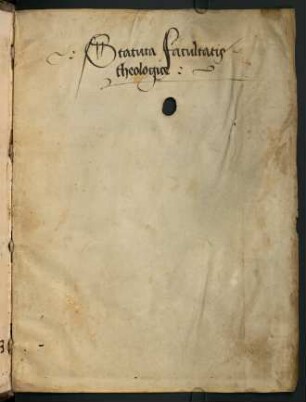 Statuta Facultatis
theologice